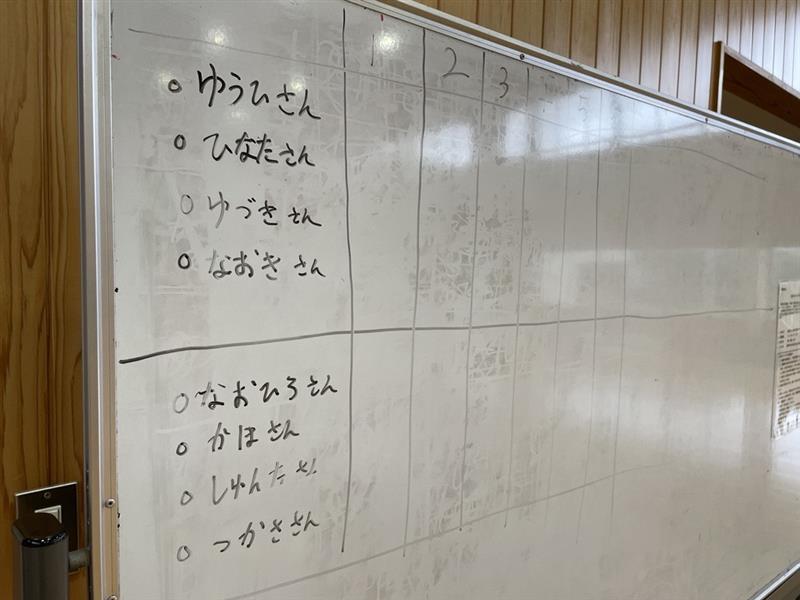 1 2 3
ゆうひさん
ひなたさん
ゆづきさん
なおきさん
なおひろさん
かほさん
しゅんたさん
つかささん